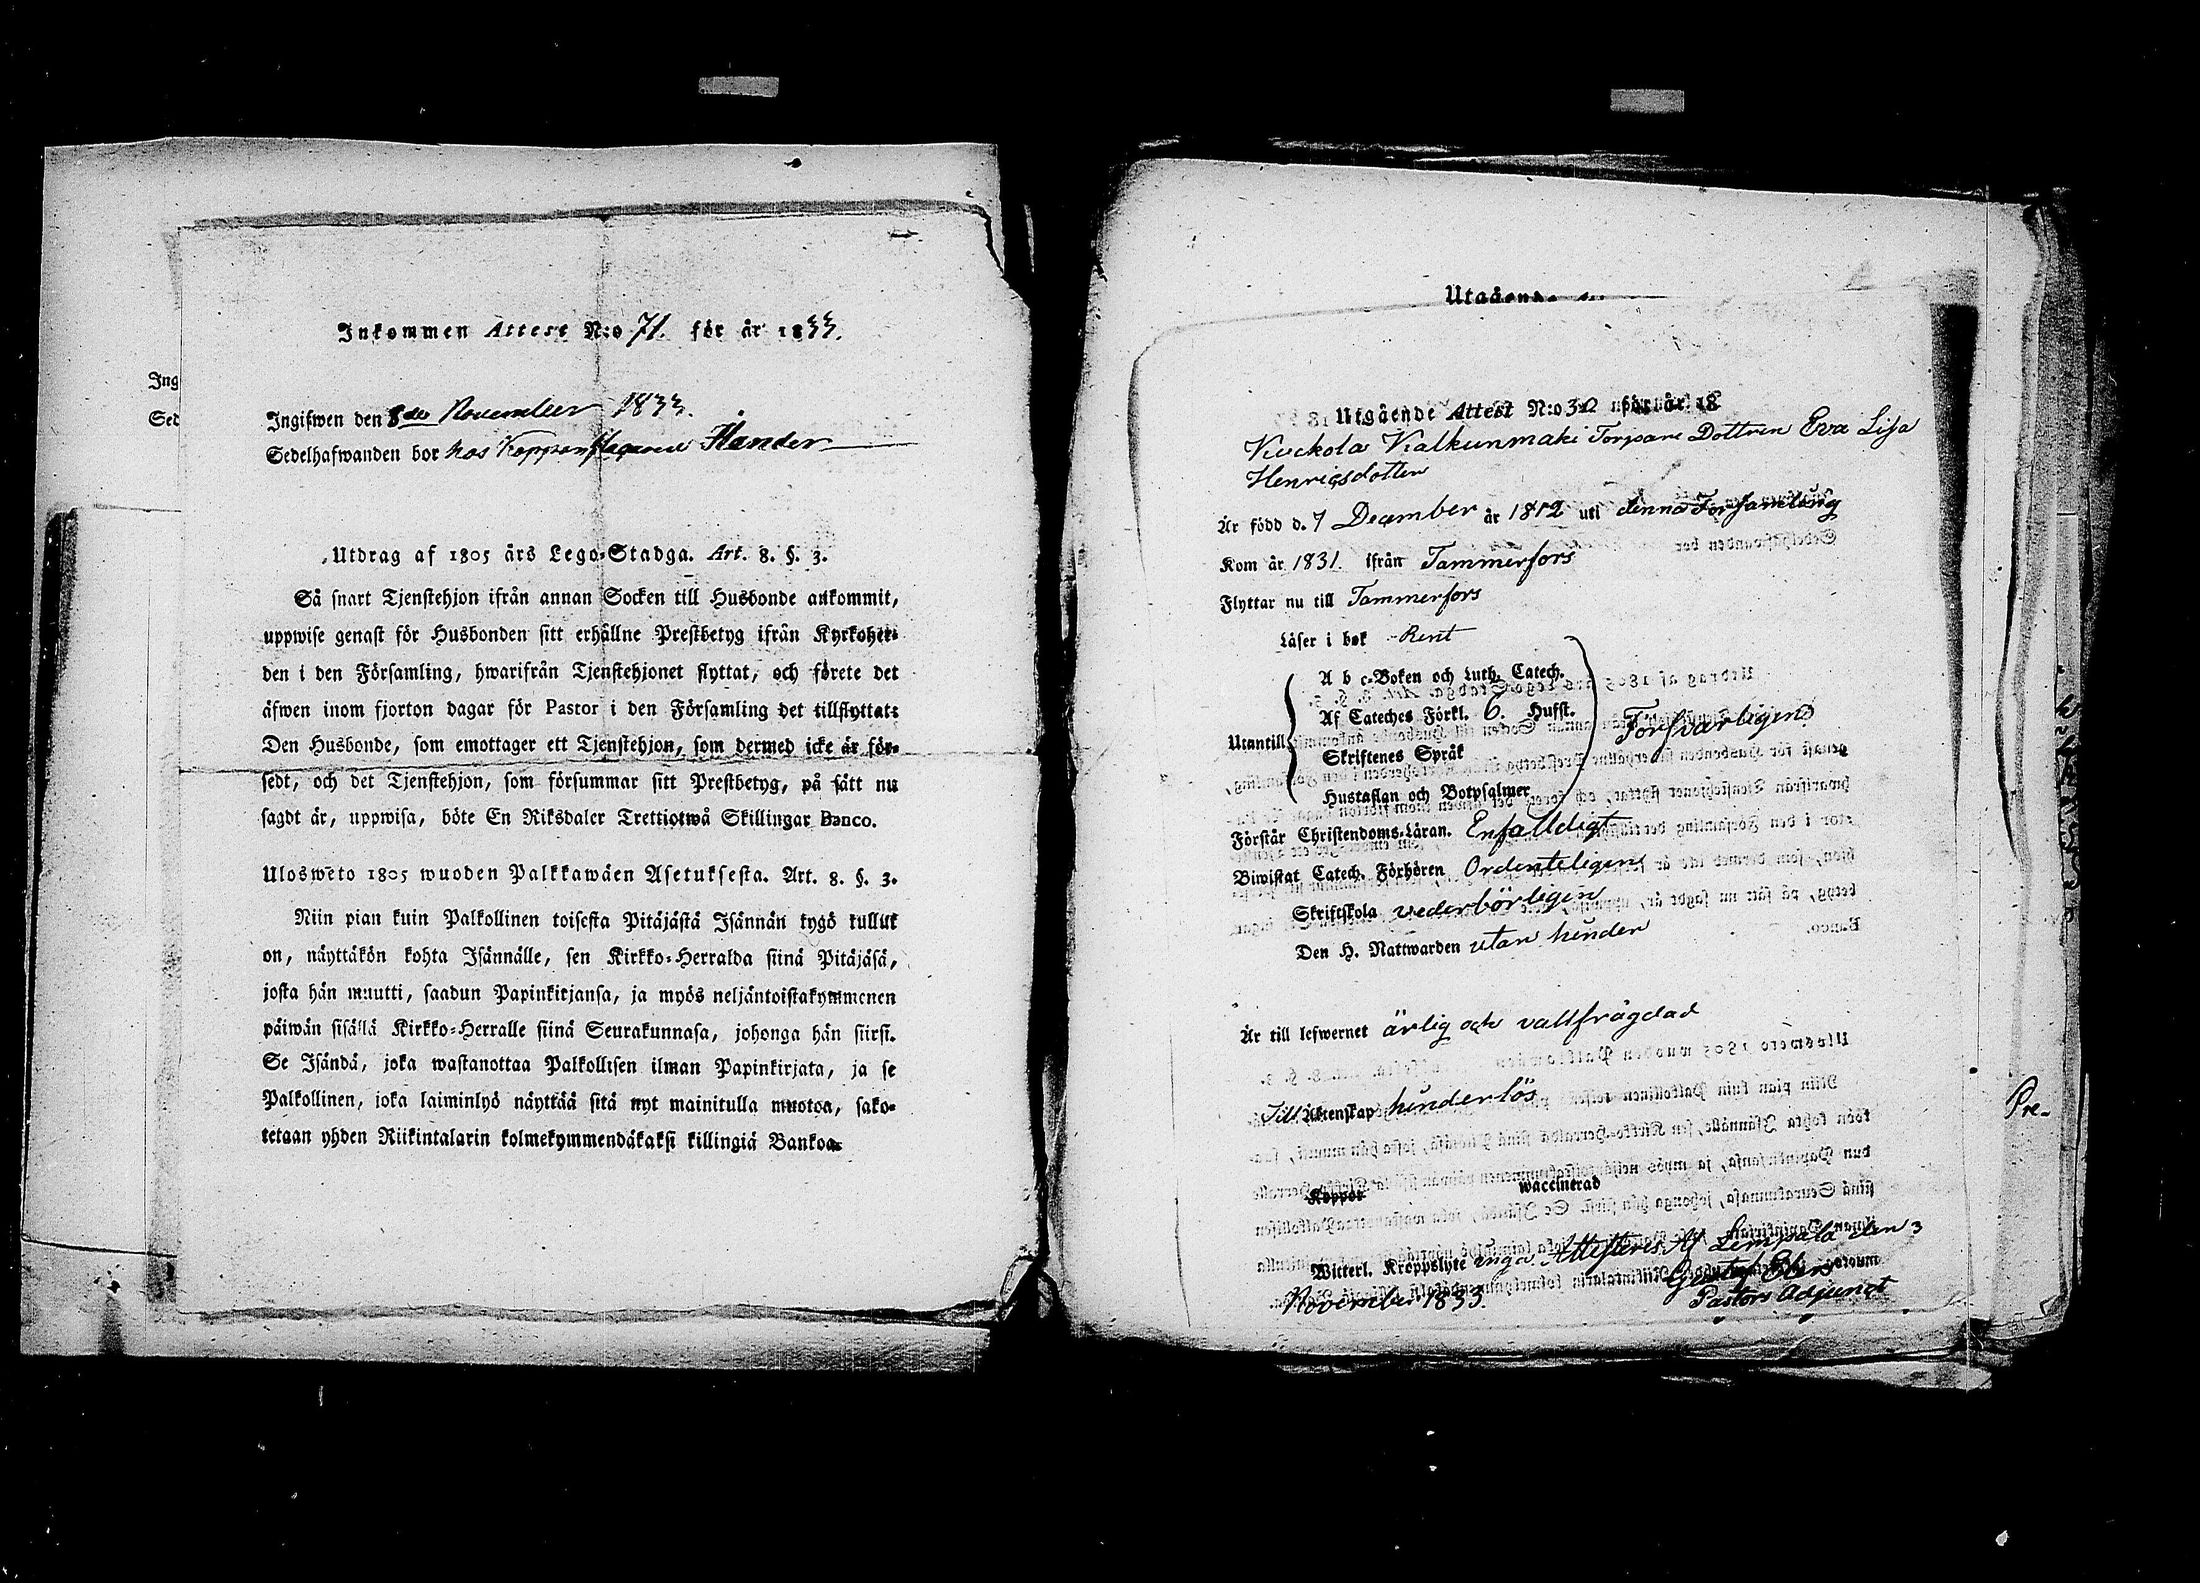 Inkommen Attest N:o 71. för år 1833.
Ingifwen den 8de November 1833.
Sedelhafwanden bor hos Kopparslagaren Ilander
Utdrag af 1805 års Lego-Stadga. Art. 8. §. 3.
Så snart Tjenstehjon ifrån annan Socken till Husbonde ankommit,
uppwise genast för Husbonden sitt erhållne Prestbetyg ifrån Kyrkoher-
den i den Församling, hwarifrån Tjenstehjonet flyttat, och förete det
äfwen inom fjorton dagar för Pastor i den Församling det tillflyttat:
Den Husbonde, som emottager ett Tjenstehjon, som dermed icke är för-
sedt, och det Tjenstehjon, som försummar sitt Prestbetyg, på sätt nu
sagdt är, uppwisa, böte En Riksdaler Trettiotwå Skillingar Banco.
Ulosweto 1805 wuoden Palkkawäen Asetuksesta. Art. 8. §. 3.
Niin pian kuin Palkollinen toisesta Pitäjästä Isännän tygö tullut
on, näyttäkön kohta Isännälle, sen Kirkko-Herralda siinä Pitäjäsä,
josta hän muutti, saadun Papinkirjansa, ja myös neljäntoistakymmenen
päiwän sisällä Kirkko-Herralle siinä Seurakunnasa, johonga hän siirsi.
Se Isändä, joka wastanottaa Palkollisen ilman Papinkirjata, ja se
Palkollinen, joka laiminlyö näyttää sitä nyt mainitulla muotoa, sako-
tetaan yhden Riikintalarin kolmekymmendäkaksi killingiä Bankoa.
Ing
Sed
Utgående
Utgående Attest N:o 32 för år 18
Kuckola Kalkunmaki Torpare Dottren Eva Lisa
Henrigsdotter
Är född d. 7 December år 1812 uti denna Forsamlung
Kom år 1831. ifrån Tammerfors
Flyttar nu till Tammerfors
Läser i bok Rent
A b c-Boken och Luth. Catech.
Af Cateches Förkl. 6. Hufst.
Utantill Skriftenes Språk Försvarligen
Hustaflan och Botpsalmer
Förstår Christendoms-Läran. Enfalldigt
Biwistat Catech. Förhören Ordenteligen
Skriftskola vederbörligen
Den H. Nattwarden utan hinder
Är till lefwernet ärlig och vällfrägdad
Till Äktenskap hinderlös
Koppor waccinerad
Witterl. Kroppslyte inga. Attesteres Af Lempala den 3
November 1833.
Gustaf Ebers
Pastors Adjunct
Pre-